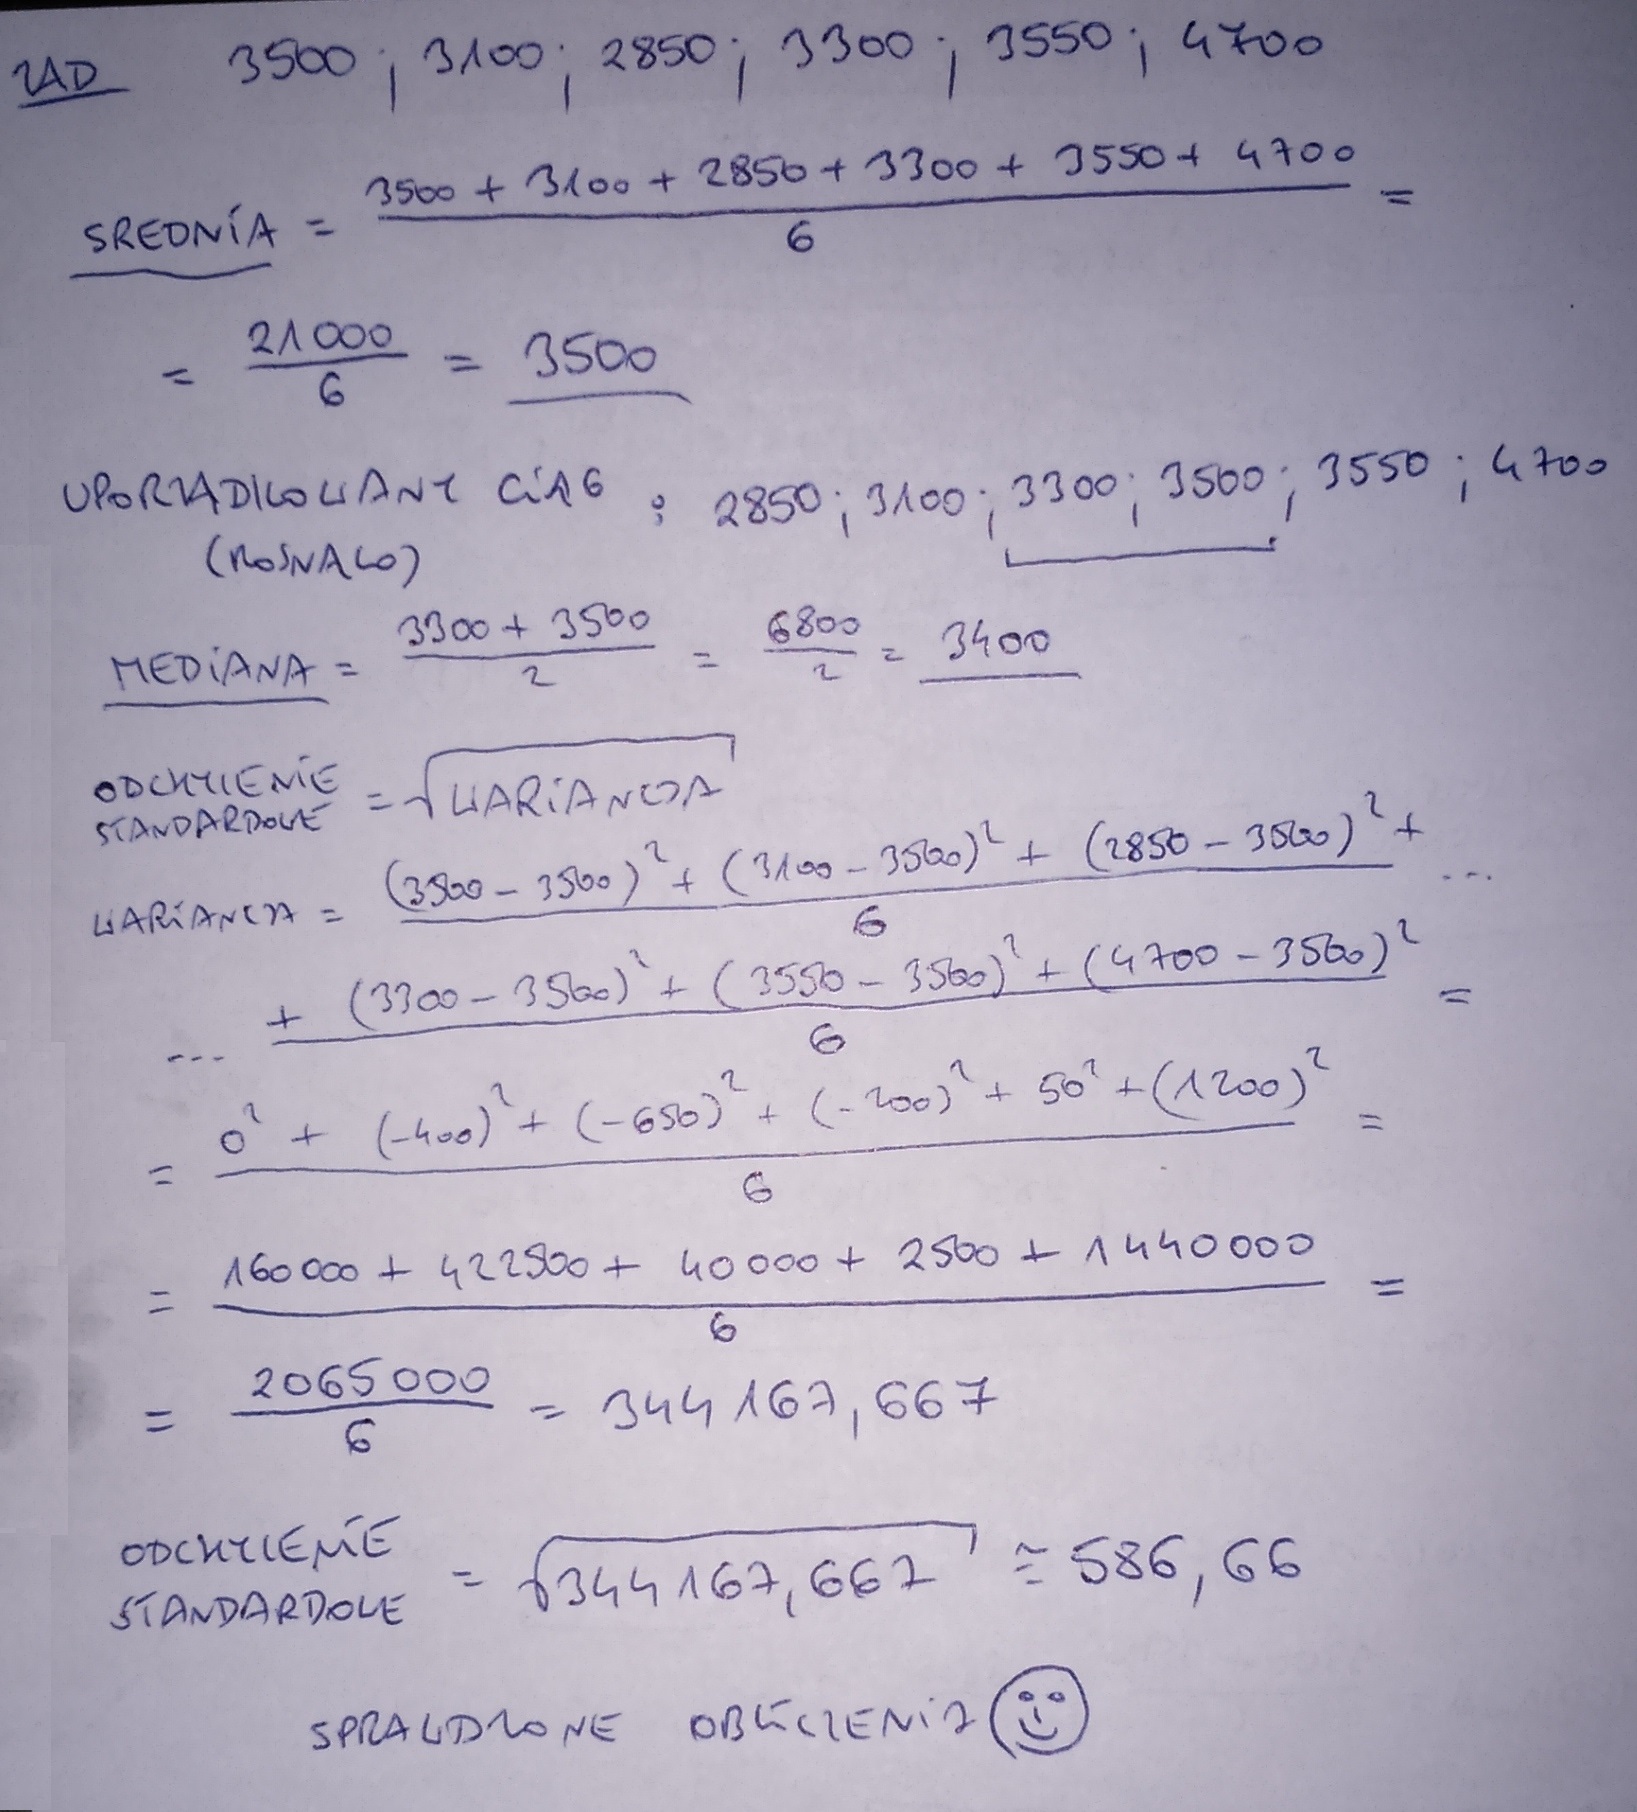 ZAD 3500 ; 3100 ; 2850 ; 3300 ; 3550 ; 4700
SREDNIA = (3500 + 3100 + 2850 + 3300 + 3550 + 4700) / 6 =
= 21000 / 6 = 3500
UPORZĄDKOWANY CIĄG : 2850 ; 3100 ; 3300 ; 3500 ; 3550 ; 4700
(ROSNĄCO)
MEDIANA = (3300 + 3500) / 2 = 6800 / 2 = 3400
ODCHYLENIE
STANDARDOWE = √WARIANCJA
WARIANCJA = (3500 - 3500)² + (3100 - 3500)² + (2850 - 3500)² + / 6 ...
... + (3300 - 3500)² + (3550 - 3500)² + (4700 - 3500)² / 6 =
= 0² + (-400)² + (-650)² + (-200)² + 50² + (1200)² / 6 =
= 160000 + 422500 + 40000 + 2500 + 1440000 / 6 =
= 2065000 / 6 = 344167,667
ODCHYLENIE
STANDARDOWE = √344167,667 ≅ 586,66
SPRAWDZONE OBLICZENIA